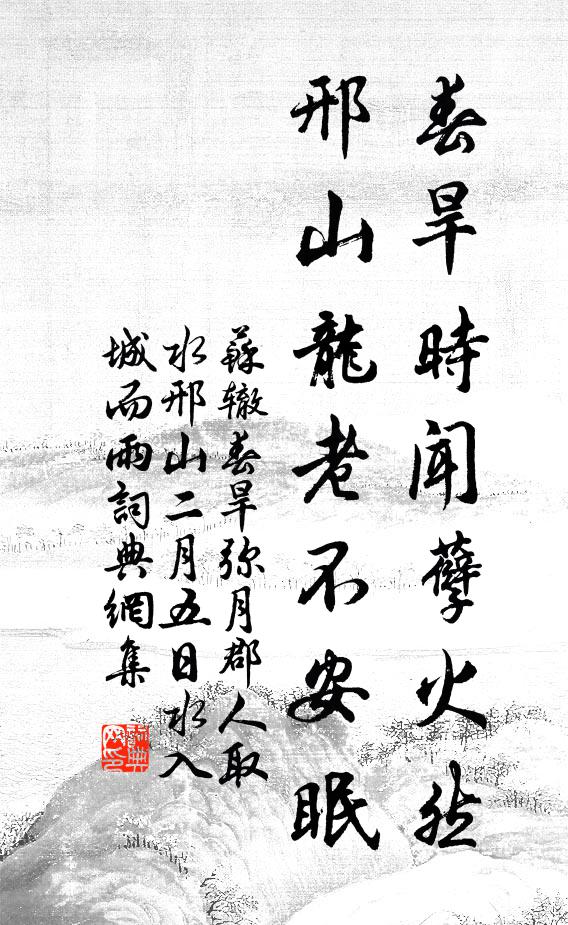 春旱時聞孽火然
邢山龍老不安眠
蘇辙春旱弥月郡人取
水邢山二月五日水入
城而雨詞典網集